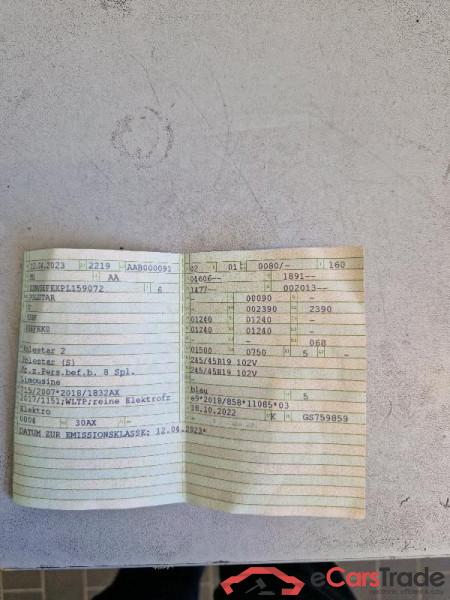 2219 AAB000091
AA
6
POLSTAR
Polestar 2
Polestar (S)
Fz.z.Pers.bef.b. 8 Spl.
Limousine
715/2007*2018/1832AX
2017/1151;WLTP;reine Elektrofz
Elektro
0004 30AX —
DATUM ZUR EMISSIONSKLASSE: 12.04.2023*
02 01 0080/- 160
04606-- 1891--
1477-- 002013--
- 00090 -
- 002390 2390
01240 01240 -
01240 01240 -
- 068
01500 0750 5 -
245/45R19 102V
245/45R19 102V
-
blau 5
e9*2018/858*11085*03
18.10.2022 K GS759859
eCarsTrade